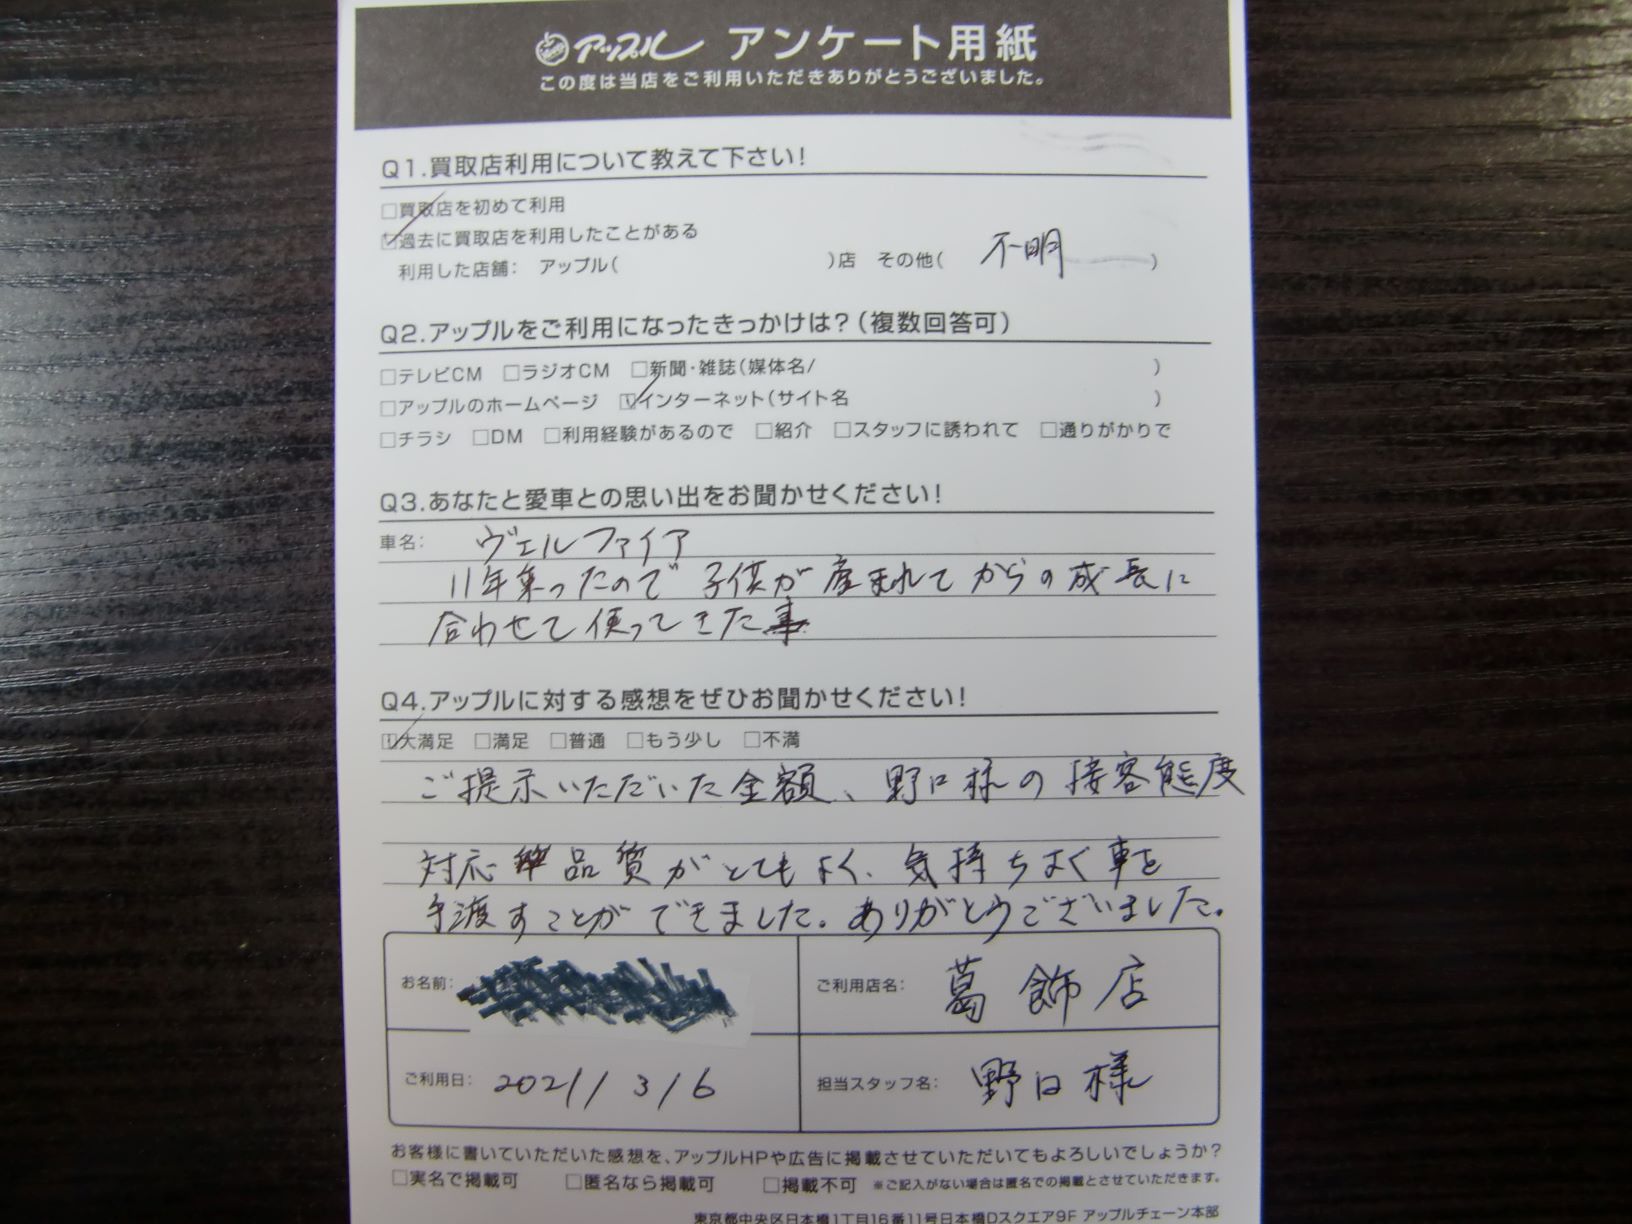 アップル アンケート用紙
この度は当店をご利用いただきありがとうございました。
Q1.買取店利用について教えて下さい!
□買取店を初めて利用
☑過去に買取店を利用したことがある
利用した店舗: アップル( )店 その他( 不明 )
Q2.アップルをご利用になったきっかけは?(複数回答可)
□テレビCM □ラジオCM □新聞・雑誌(媒体名/ )
□アップルのホームページ ☑インターネット(サイト名 )
□チラシ □DM □利用経験があるので □紹介 □スタッフに誘われて □通りがかりで
Q3.あなたと愛車との思い出をお聞かせください!
車名: ヴェルファイア
11年乗ったので 子供が産まれてからの成長に
合わせて使ってきた事
Q4.アップルに対する感想をぜひお聞かせください!
☑大満足 □満足 □普通 □もう少し □不満
ご提示いただいた金額、野口様の接客態度
対応 品質がとてもよく、気持ちよく車を
手渡すことができました。ありがとうございました。
お名前: ご利用店名: 葛飾店
ご利用日: 2021/3/6 担当スタッフ名: 野口様
お客様に書いていただいた感想を、アップルHPや広告に掲載させていただいてもよろしいでしょうか?
□実名で掲載可 □匿名なら掲載可 □掲載不可 ※ご記入がない場合は匿名での掲載とさせていただきます。
東京都中央区日本橋1丁目16番11号日本橋Dスクエア9F アップルチェーン本部